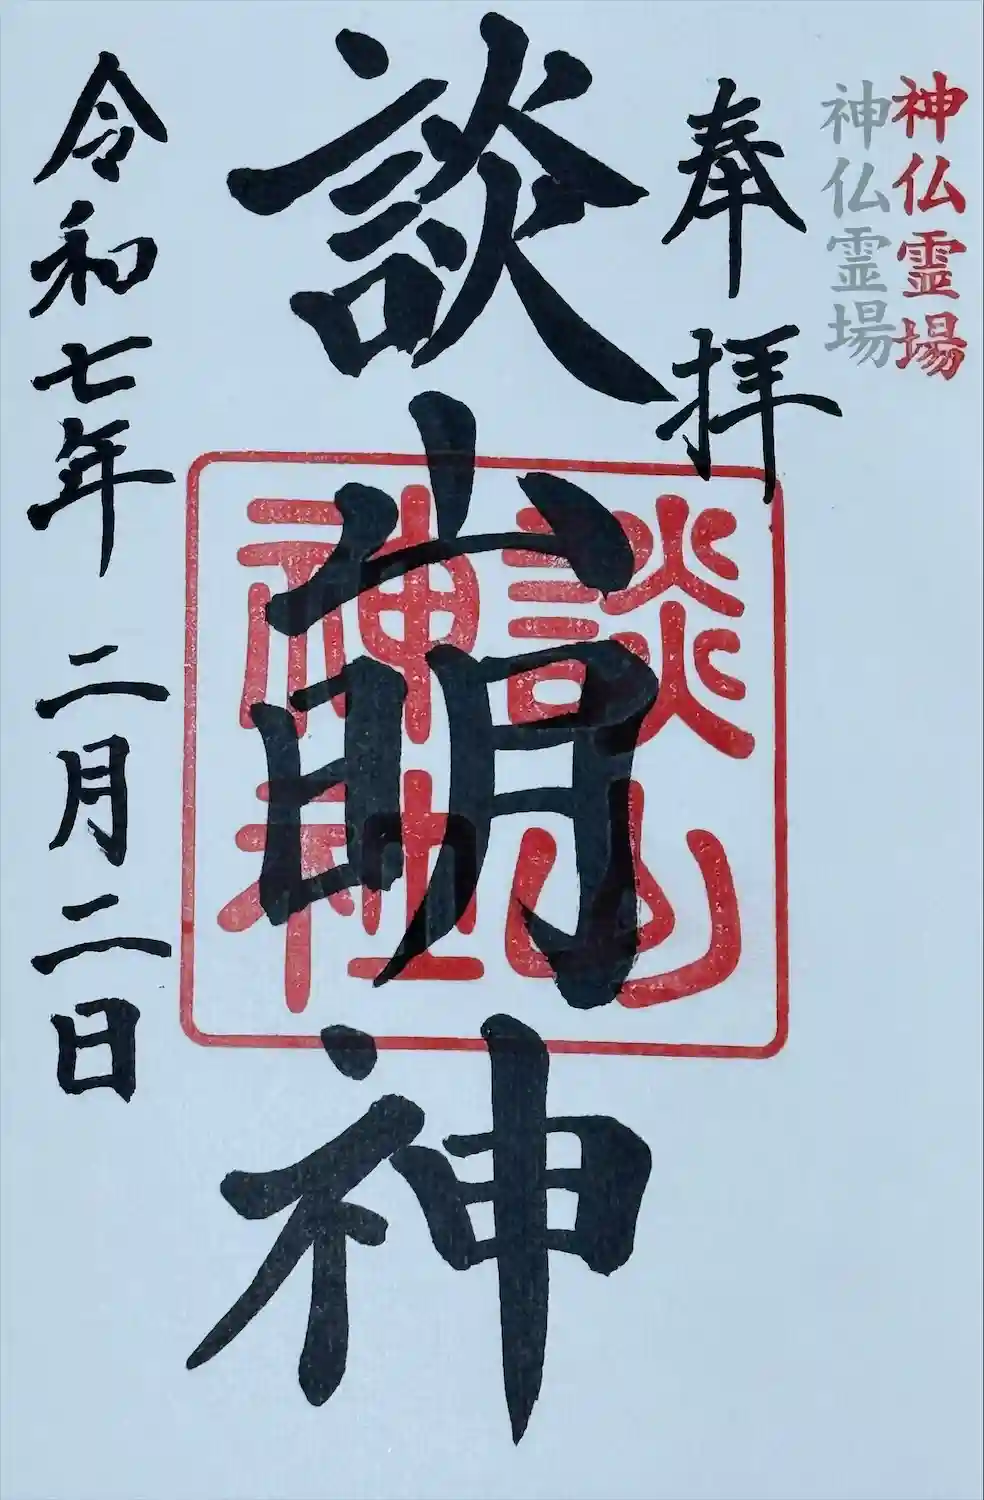 神仏霊場
神仏霊場
奉拝
談山明神
談山
神社
令和七年二月二日